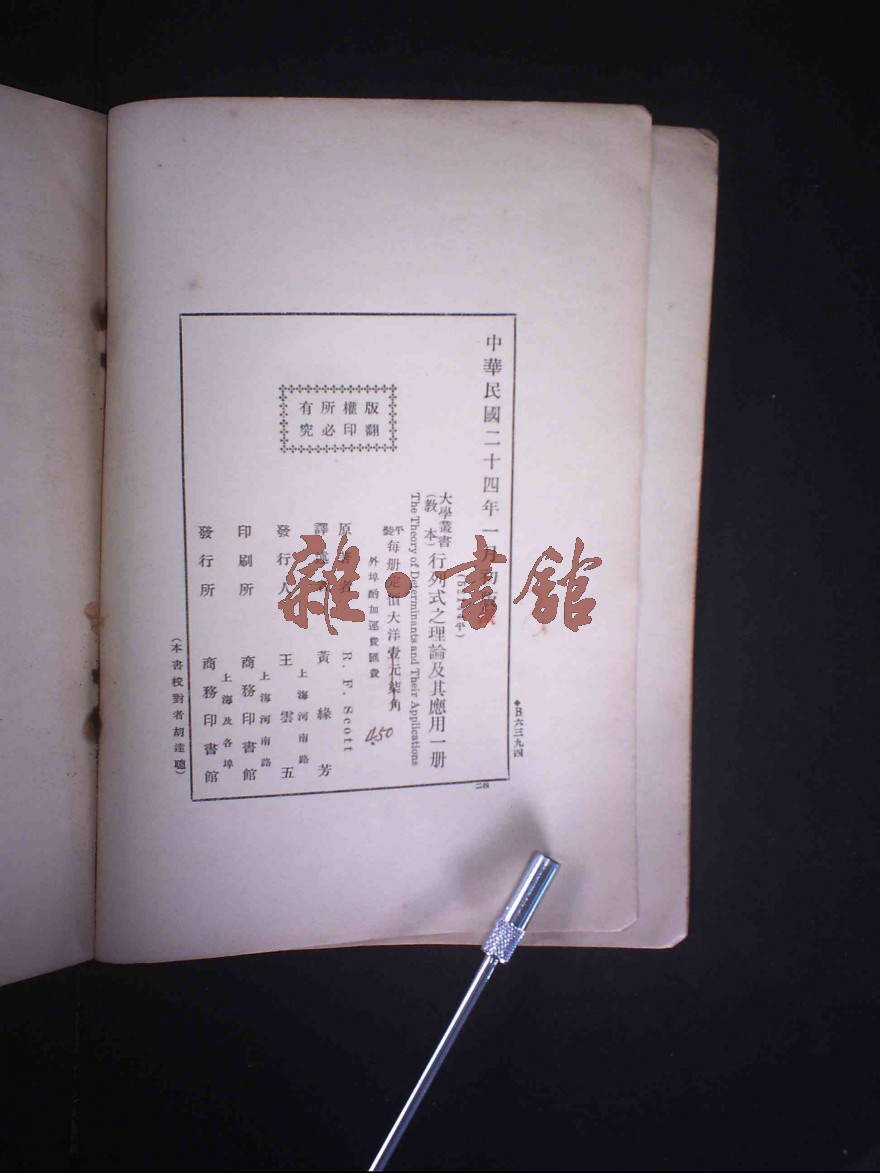 中華民國二十四年一月初版
大學叢書
(教本)
行列式之理論及其應用一册
The Theory of Determinants and Their Applications
平裝
每册定價大洋壹元柒角
外埠酌加運費匯費
450
原著者 R. F. Scott
譯述者 黃緣芳
發行人 王雲五
上海河南路
印刷所 商務印書館
上海河南路
發行所 商務印書館
上海及各埠
(本書校對者胡達聰)
版權所有
翻印必究
◆B六三九四
雜·書館